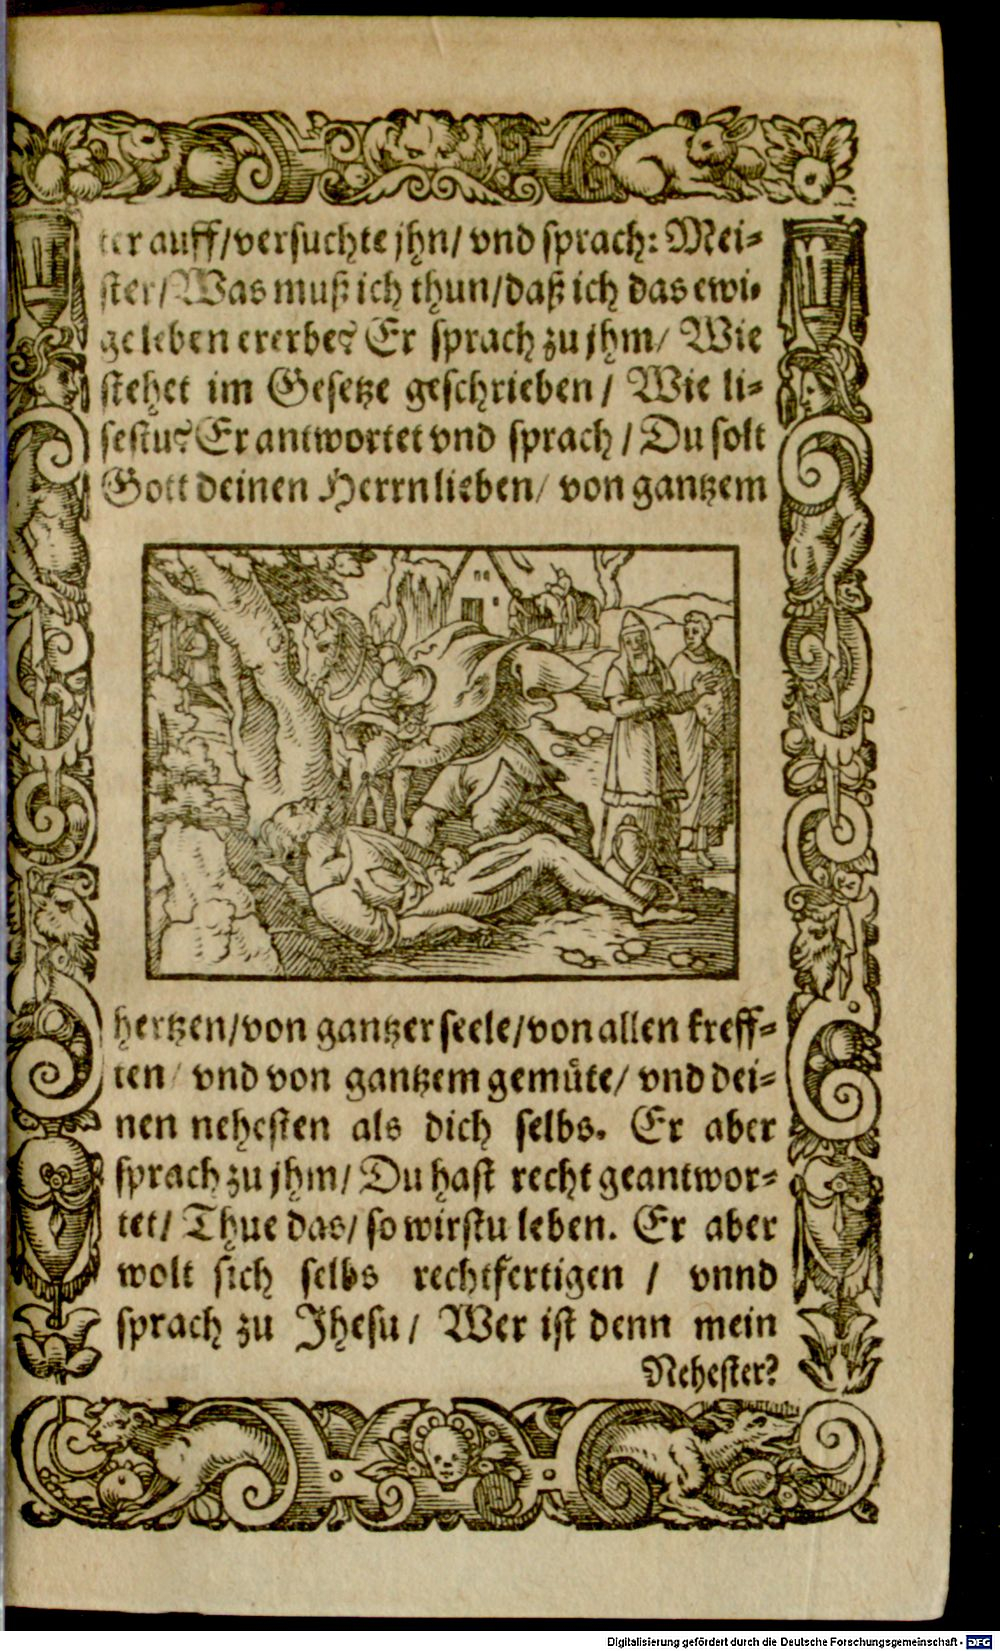 ter auff/versuchte jhn/ vnd sprach: Mei=
ster/ Was muß ich thun/daß ich das ewi=
ge leben ererbe? Er sprach zu jhm/ Wie
stehet im Gesetze geschrieben / Wie li=
sestu? Er antwortet vnd sprach / Du solt
Gott deinen Herrn lieben/ von gantzem
hertzen/von gantzer seele/von allen kreff=
ten/ vnd von gantzem gemüte/ vnd dei=
nen nehesten als dich selbs. Er aber
sprach zu jhm/ Du hast recht geantwor=
tet/ Thue das/ so wirstu leben. Er aber
wolt sich selbs rechtfertigen / vnnd
sprach zu Jhesu/ Wer ist denn mein
Nehester?
Digitalisierung gefördert durch die Deutsche Forschungsgemeinschaft - DFG